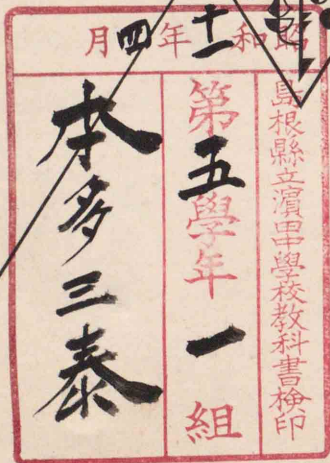 昭和十一年四月
島根縣立濱田中學校教科書檢印
第五學年一組
本多三泰